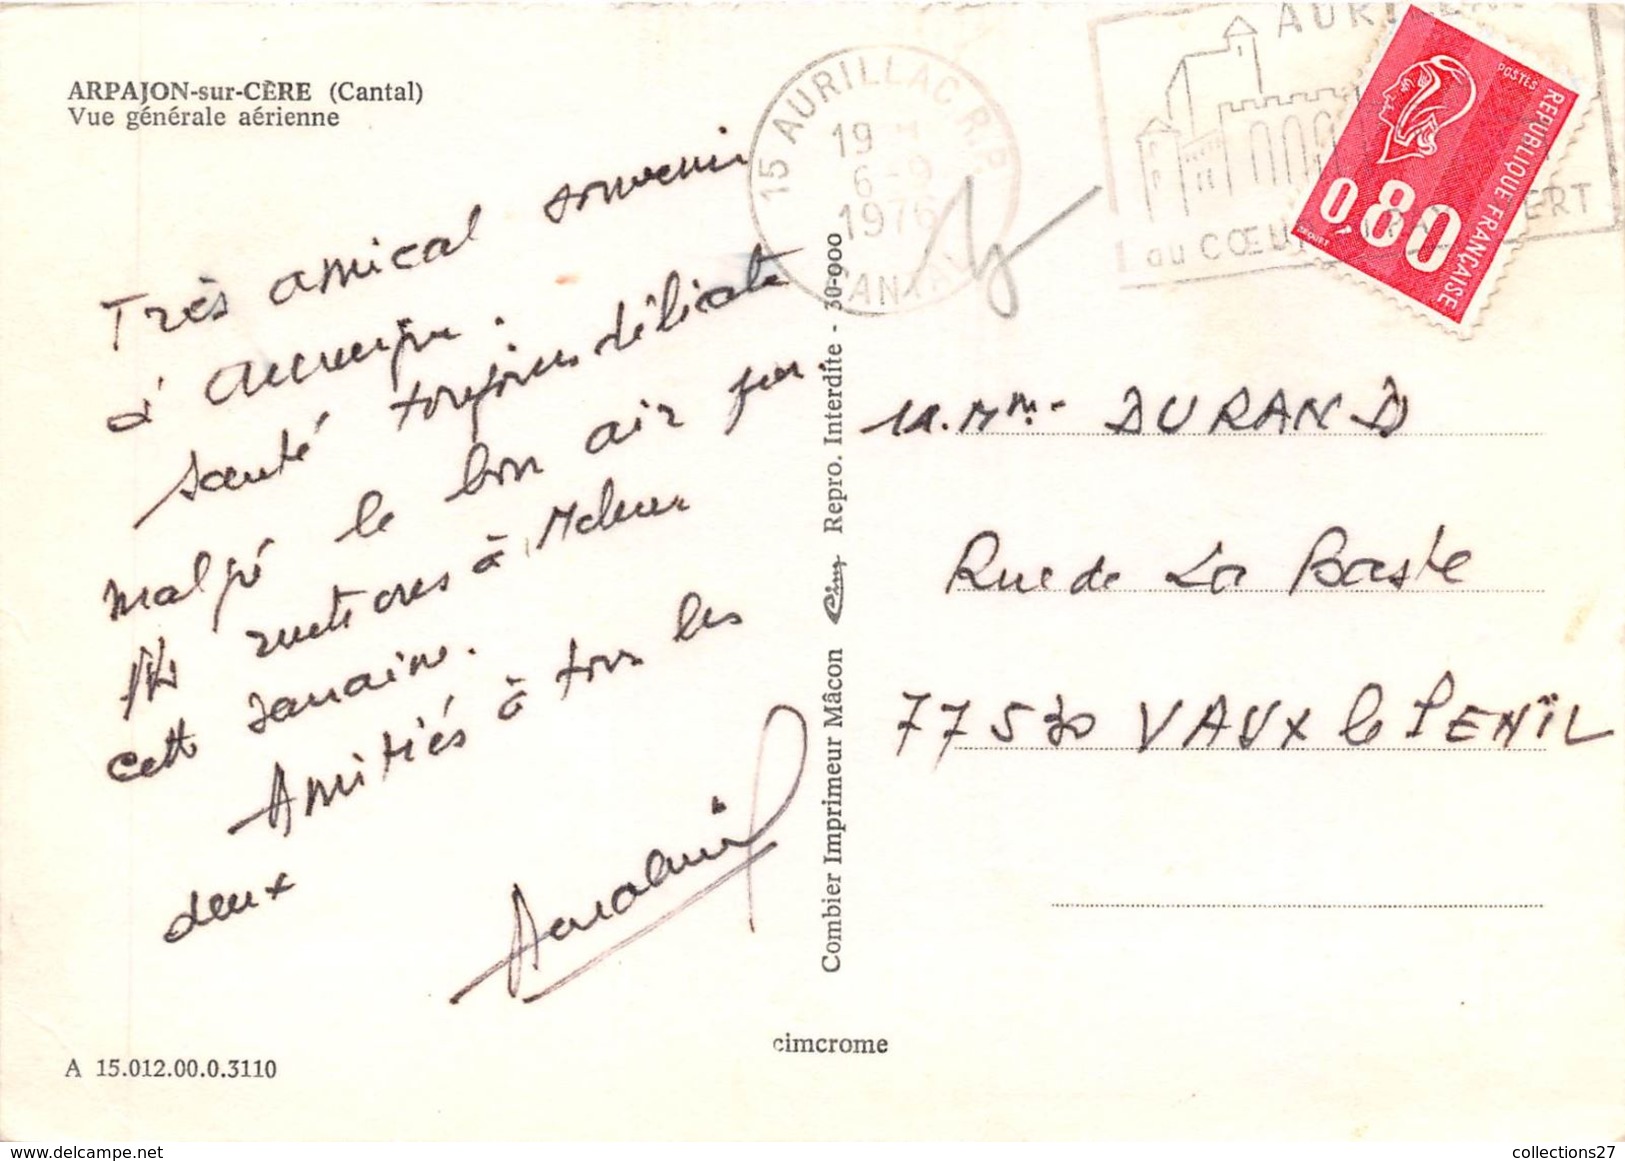 ARPAJON-sur-CÈRE (Cantal)
Vue générale aérienne
Très amical souvenir
d'Auvergne.
Santé toujours délicate
malgré le bon air pur.
rentrons à Melun
cette semaine.
Amitiés à tous les
deux
15 AURILLAC R.P.
19 H
6-9
1976
CANTAL
AURILLAC
au CŒUR
VERT
POSTES
REPUBLIQUE FRANÇAISE
0,80
BEQUET
M. Mme DURAND
Rue de La Baste
77530 VAUX le PENIL
Combier Imprimeur Mâcon Cim Repro. Interdite - 30-900
cimcrome
A 15.012.00.0.3110
collections27